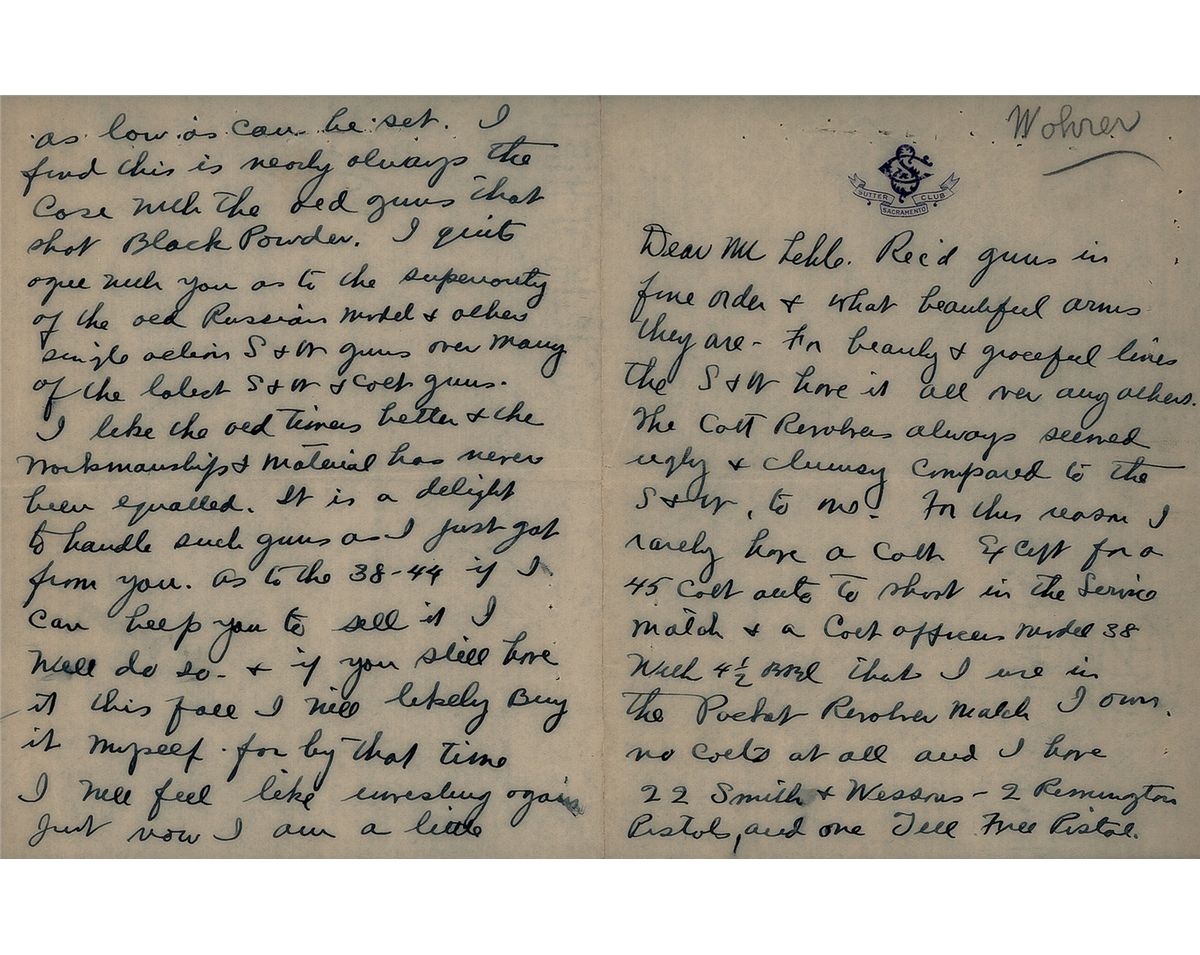 Wohrer
SUTTER CLUB
SACRAMENTO
Dear Mr Rec'd guns in
fine order & what beautiful arms
they are - For beauty & graceful lines
the S & W have it all over any others.
The Colt Revolvers always seemed
ugly & clumsy compared to the
S & W, to me. For this reason I
rarely have a Colt Except for a
45 Colt auto to shoot in the Service
match & a Colt officers model 38
With 4 1/2 BBl that I use in
the Pocket Revolver Match I own
no Colts at all and I have
22 Smith & Wessons - 2 Remington
Pistols, and one Tell Free Pistol.
as low as can be set. I
find this is nearly always the
case with the old guns that
shot Black Powder. I quite
agree with you as to the superiority
of the old Russian model & other
single action S & W guns over many
of the latest S & W & Colt guns.
I like the old timers better & the
Workmanship & material has never
been equalled. It is a delight
to handle such guns as I just got
from you. As to the 38-44 if I
can help you to sell it I
Will do so - & if you still have
it this fall I will likely Buy
it myself - for by that time
I will feel like investing again
Just now I am a little